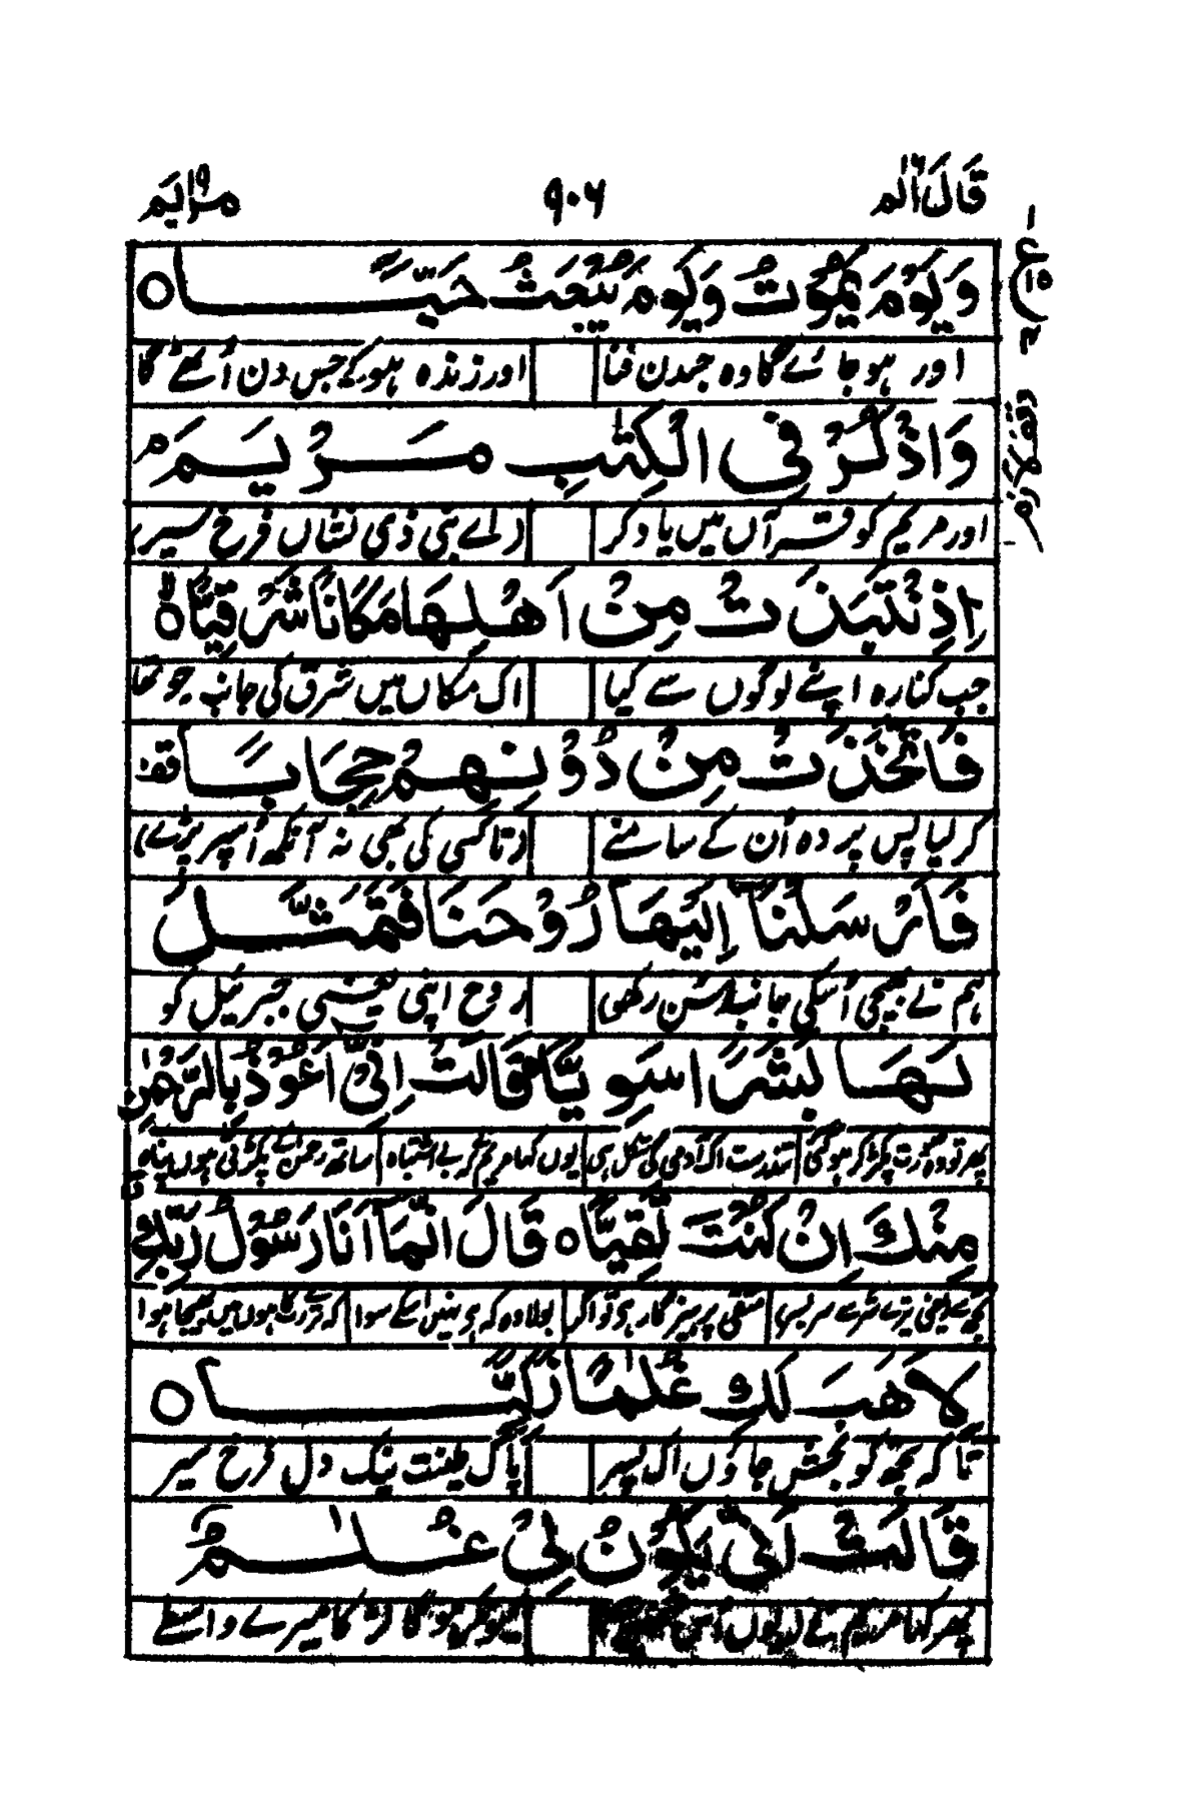 قَالَ اَلَم ١٦ ٩٠٦ مريم ١٩
وَيَوْمَ يَمُوْتُ وَيَوْمَ يُبْعَثُ حَيًّا ٥
اور ہو جائے گا وہ جس دن فنا اور زندہ ہو کے جس دن اُٹھے گا
وَاذْكُرْ فِى الْكِتٰبِ مَرْيَمَ
اور مریم کو قرآں میں یاد کر (اے نبی ذی نشاں فرخ سیر)
اِذِ انْتَبَذَتْ مِنْ اَهْلِهَا مَكَانًا شَرْقِيًّا ٥
جب کنارہ اپنے لوگوں سے کیا اک مکاں میں شرق کی جانب جو تھا
فَاتَّخَذَتْ مِنْ دُوْنِهِمْ حِجَابًا قف
کر لیا پس پردہ اُن کے سامنے (تا کسی کی بھی نہ آنکھ اُسپر پڑے)
فَاَرْسَلْنَا اِلَيْهَا رُوْحَنَا فَتَمَثَّلَ
ہم نے بھیجی اُسکی جانب سُن رکھی روح اپنی یعنی جبرئیل کو
لَهَا بَشَرًا سَوِيًّا قَالَتْ اِنِّىْ اَعُوْذُ بِالرَّحْمٰنِ
پھر تو وہ صورت پکڑ کر ہو گئی تندرست اک آدمی کی شکل ہی یوں کہا مریم نے بے اشتباہ ساتھ رحمن کے پکڑتی ہوں پناہ
مِنْكَ اِنْ كُنْتَ تَقِيًّا ٥ قَالَ اِنَّمَا اَنَا رَسُوْلُ رَبِّكِ
تجھ سے یعنی تیرے شر سے سر بسر متقی پرہیزگار ہی تو اگر بولا وہ کہ ہوں نہیں اسکے سوا کہ ترے رب کا ہوں میں بھیجا ہوا
لِاَهَبَ لَكِ غُلٰمًا زَكِيًّا ٥
تا کہ تجھ کو بخش جاؤں اک پسر پاک طینت نیک دل فرخ سیر
قَالَتْ اَنّٰى يَكُوْنُ لِىْ غُلٰمٌ
پھر کہا مریم نے یوں کیونکر ہو گا لڑکا میرے واسطے